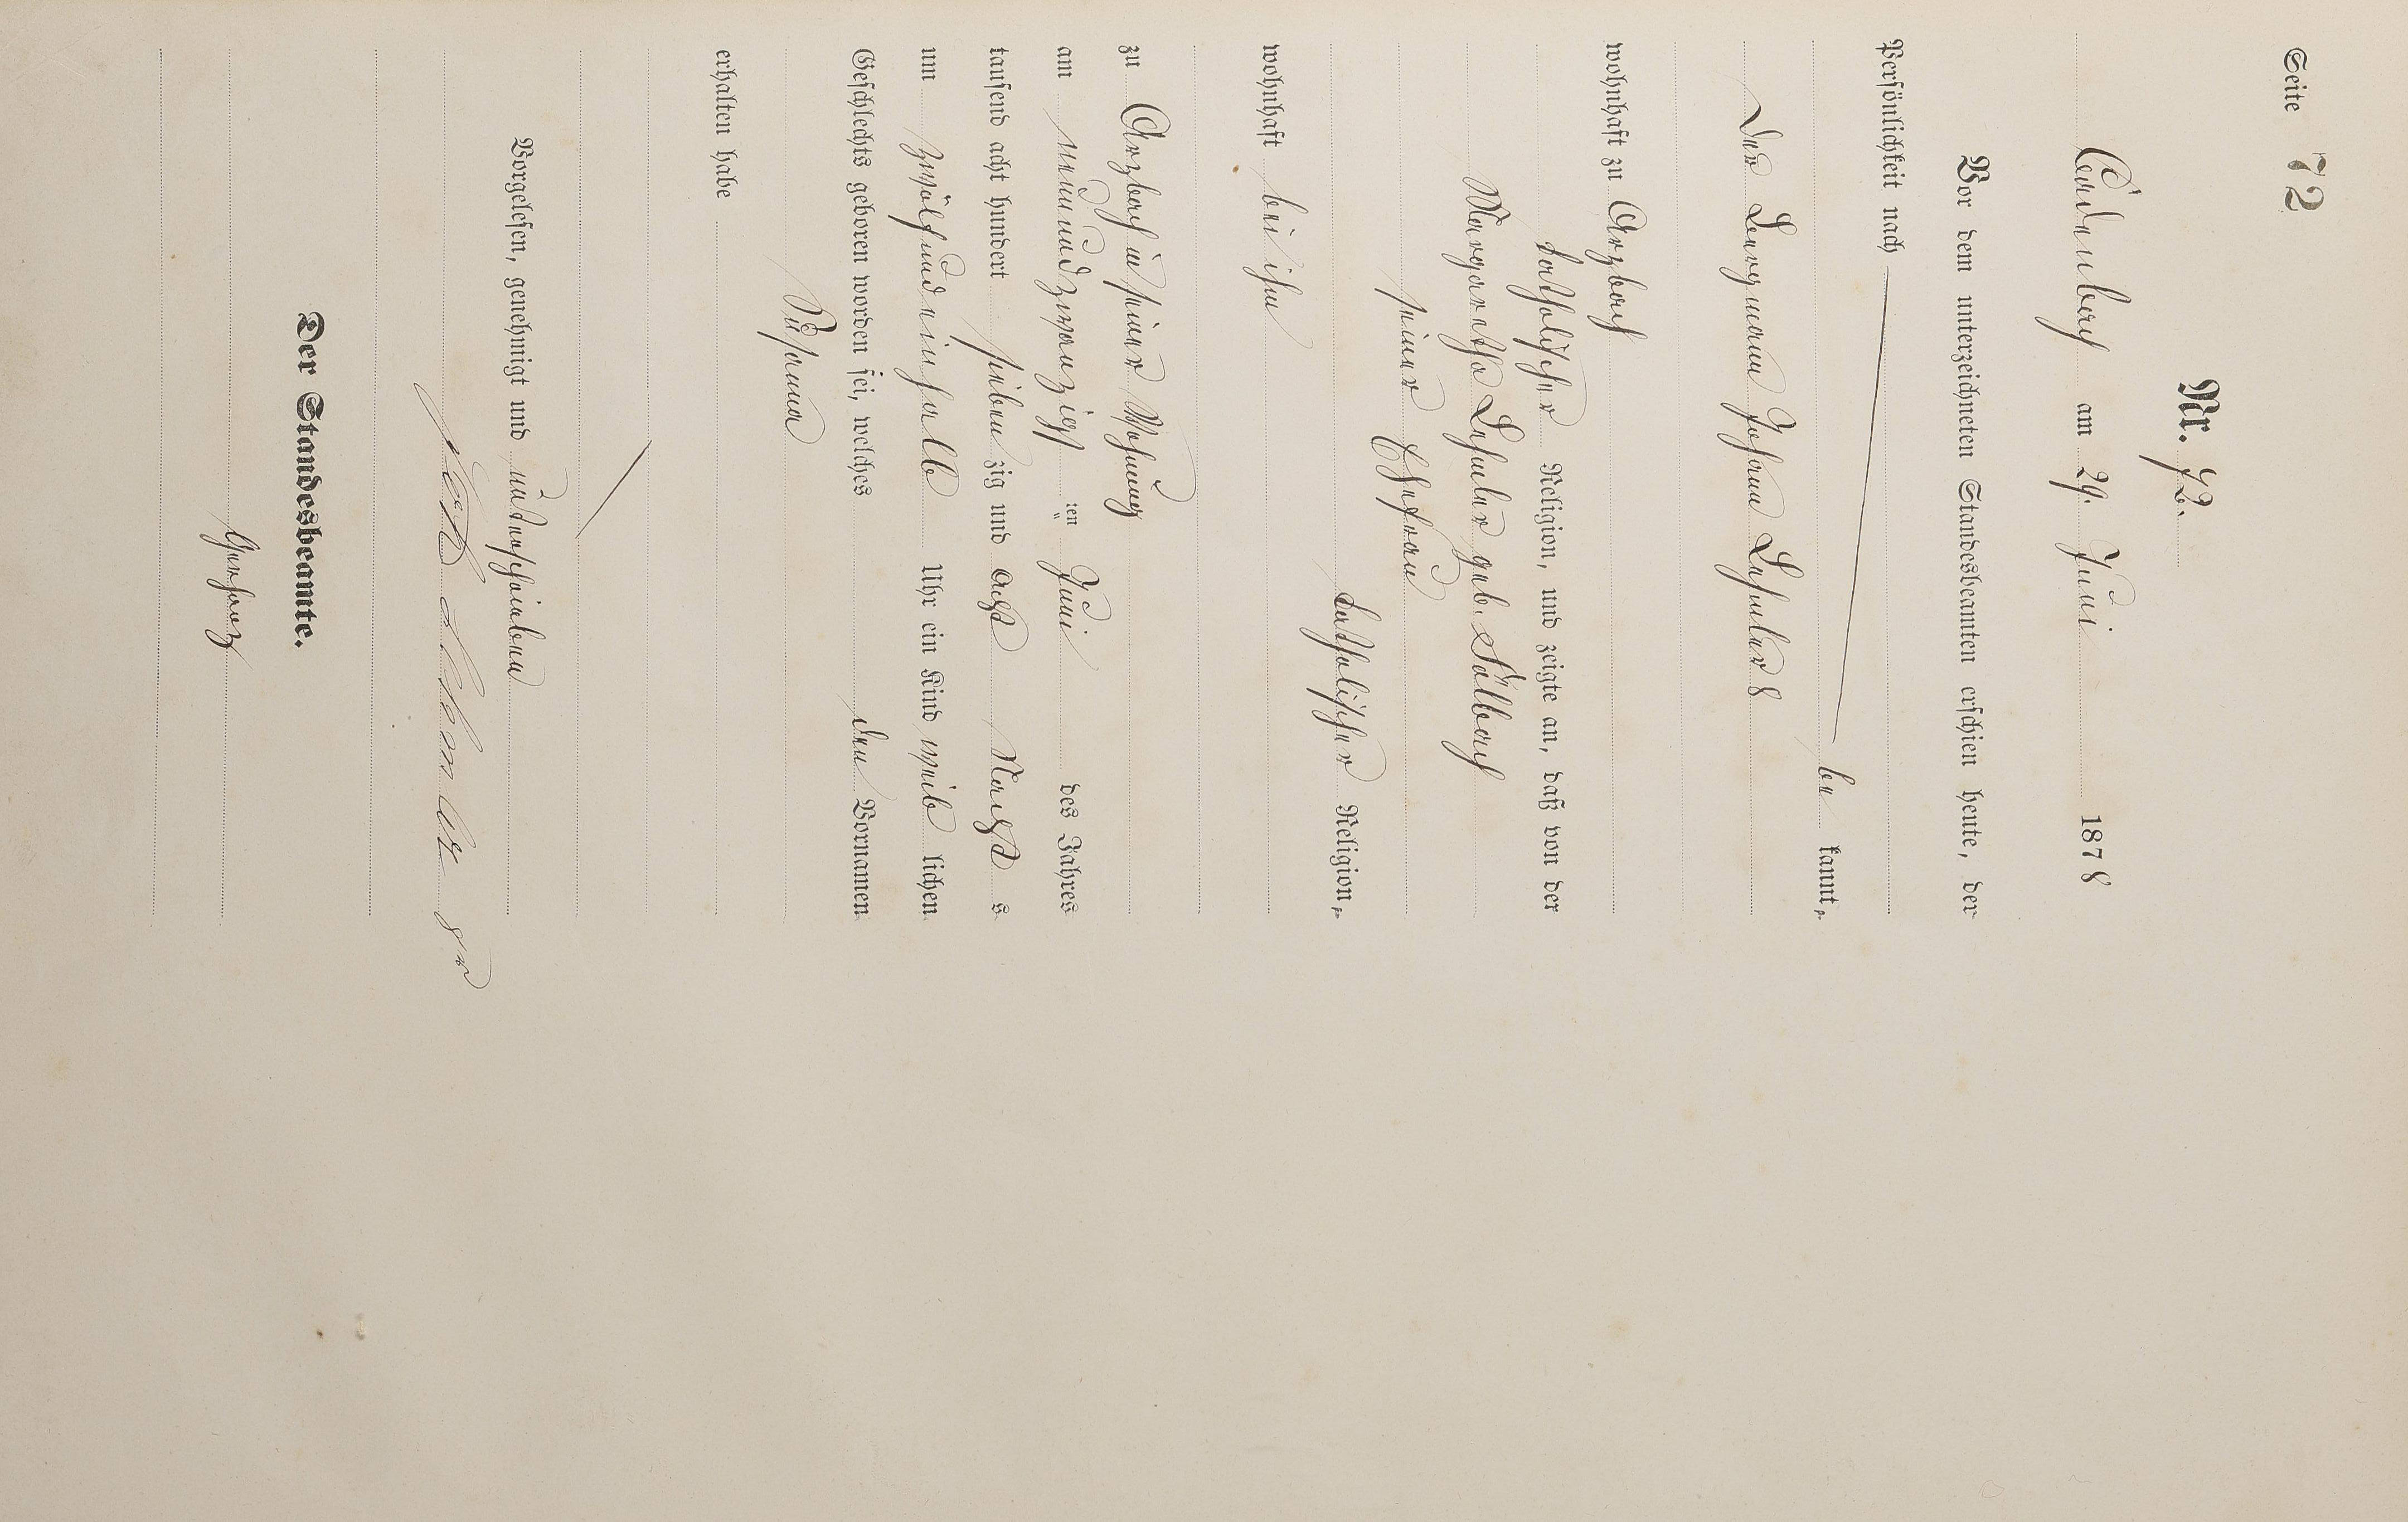 Seite 72
Nr. 72.
Cadenbach am 29. Juni 1878
Vor dem unterzeichneten Standesbeamten erschien heute, der
Persönlichkeit nach
be kannt,
Der Bergmann Johann Lehmler 8
wohnhaft zu Arzbach
katholischer Religion, und zeigte an, daß von der
Margaretha Lehmler geb. Sälbach
seiner Ehefrau
katholischer Religion,
wohnhaft bei ihm
zu Arzbach in seiner Wohnung
am neunundzwanzigs ten Juni des Jahres
tausend acht hundert sieben zig und acht Nachts
um zwölfundeinhalb Uhr ein Kind weib lichen
Geschlechts geboren worden sei, welches den Vornamen
Susanna
erhalten habe
Vorgelesen, genehmigt und unterschrieben
Joh Lehmler 8r
Der Standesbeamte.